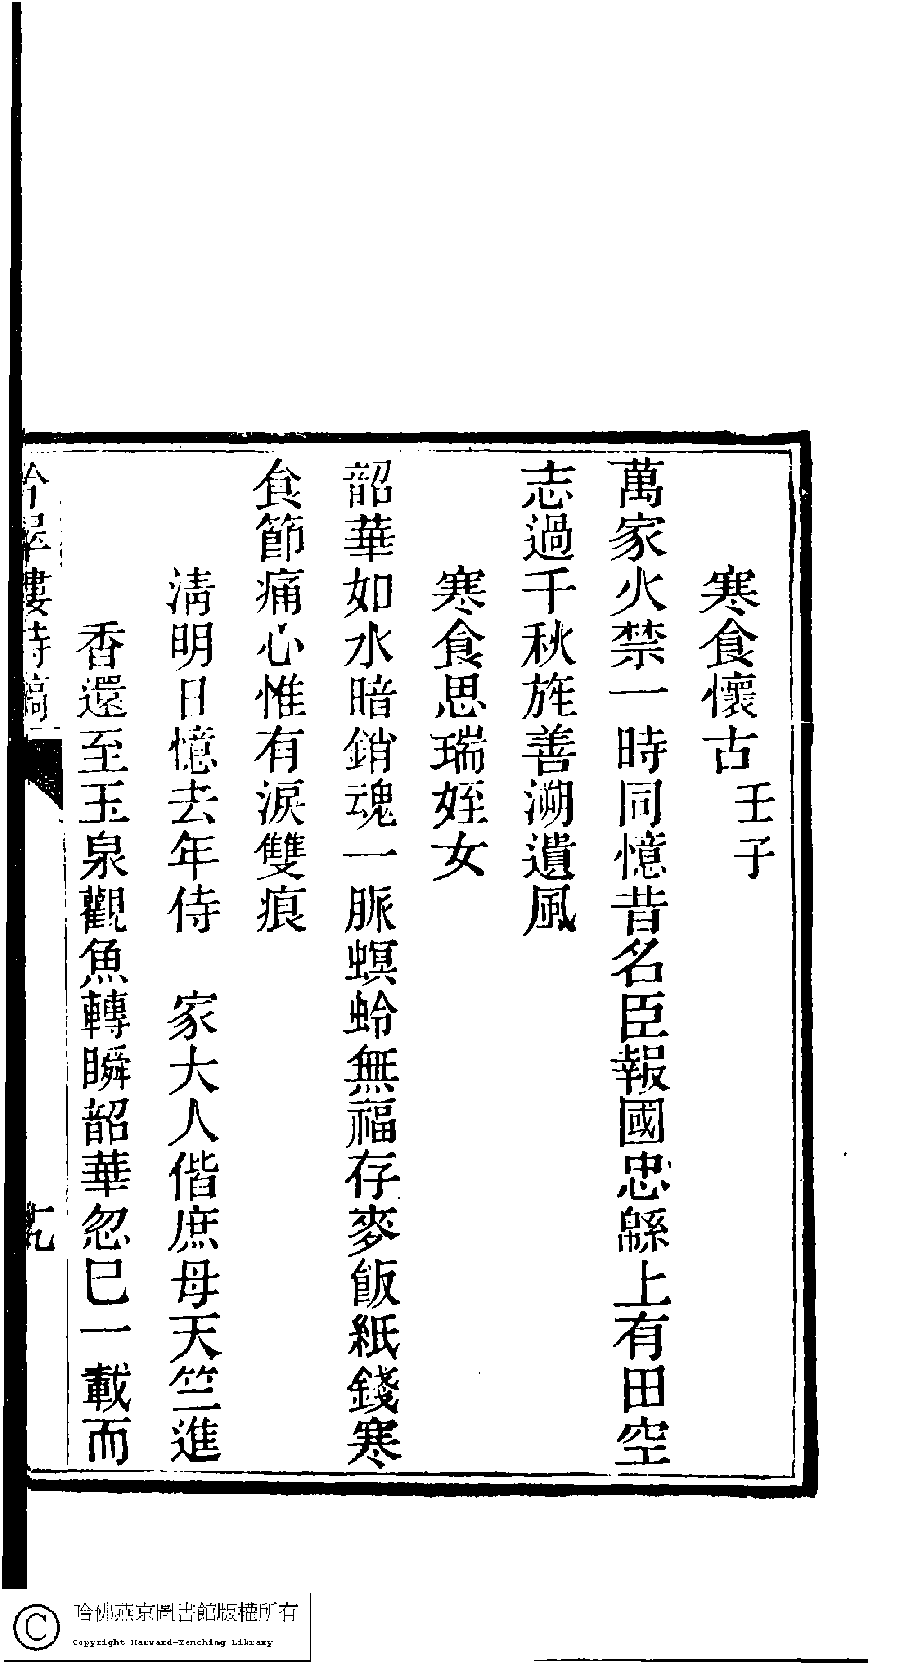 寒食懷古 壬子
萬家火禁一時同憶昔名臣報國忠緜上有田空
志過千秋旌善溯遺風
寒食思瑞姪女
韶華如水暗銷魂一脈螟蛉無福存麥飯紙錢寒
食節痛心惟有淚雙痕
淸明日憶去年侍 家大人偕庶母天竺進
香還至玉泉觀魚轉瞬韶華忽已一載而
翠樓詩稿
十九
哈佛燕京圖書館版權所有
Copyright Harvard-Yenching Library